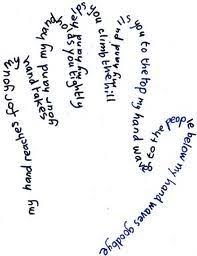 my hand reaches for your
hand takes
your hand my hand
holds you tightly
my hand helps
you climb the hill
my hand pulls
you to the top my hand waves
to the people below my hand waves goodbye